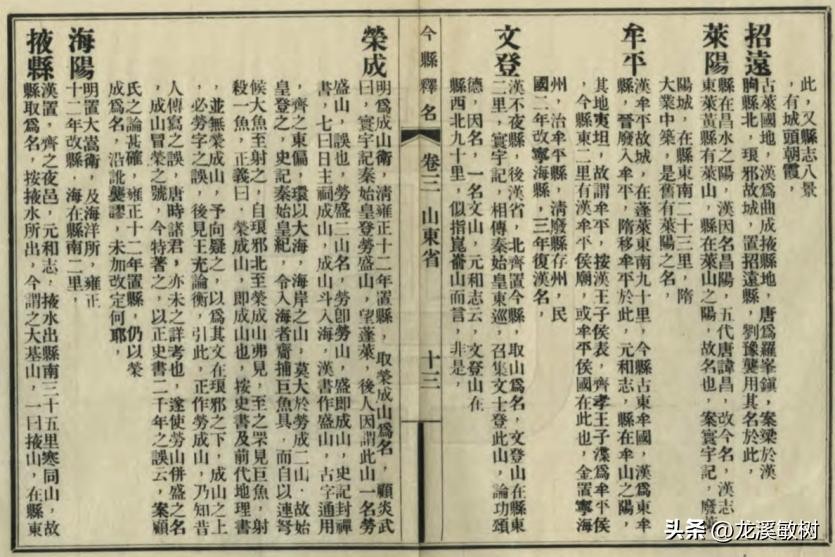 此，又縣志八景
，有城頭朝霞，
招遠
古萊國地，漢爲曲成掖縣地，唐爲羅峯鎮，案梁於漢
朐縣北，琅邪故城，置招遠縣，劉豫襲用其名於此，
萊陽
縣在昌水之陽，漢因名昌陽，五代唐諱昌，改今名，漢志
東萊黃縣有萊山，縣在萊山之陽，故名也，案寰宇記，廢萊
陽城，在縣東南二十三里，隋
大業中築，是舊有萊陽之名，
牟平
漢牟平故城，在蓬萊東南九十里，今縣古東牟國，漢爲東牟
縣，晉廢入牟平，隋移牟平於此，元和志，縣在牟山之陽，
其地夷坦，故謂牟平，按漢王子侯表，齊孝王子渫爲牟平侯
，今縣東二里有漢牟平侯廟，或牟平侯國在此也，金置寧海
州，治牟平縣，清廢縣存州，民
國二年改寧海縣，三年復漢名，
文登
漢不夜縣，後漢省，北齊置今縣，取山爲名，文登山在縣東
二里，寰宇記，相傳秦始皇東巡，召集文士登此山，論功頌
德，因名，一名文山，元和志云，文登山在
縣西北九十里，似指崑崙山而言，非是，
今縣釋名 卷三 山東省 十三
榮成
明爲成山衛，清雍正十二年置縣，取榮成山爲名，顧炎武
曰，寰宇記秦始皇登勞盛山，望蓬萊，後人因謂此山一名勞
盛山，誤也，勞盛二山名，勞卽勞山，盛即成山，史記封禪
書，七曰日主祠成山，成山斗入海，漢書作盛山，古字通用
，齊之東偏，環以大海，海岸之山，莫大於勞成二山，故始
皇登之，史記秦始皇紀，令入海者齎捕巨魚具，而自以連弩
候大魚至射之，自琅邪北至榮成山弗見，至之罘見巨魚，射
殺一魚，正義曰，榮成山，即成山也，按史書及前代地理書
，並無榮成山，予向疑之，以爲其文在琅邪之下，成山之上
，必勞字之誤，後見王充論衡，引此，正作勞成山，乃知昔
人傳寫之誤，唐時諸君，亦未之詳考也，遂使勞山併盛之名
，成山冒榮之號，今特著之，以正史書二千年之誤云，案顧
氏之論甚確，雍正十二年置縣，仍以榮
成爲名，沿訛襲謬，未加改定何耶，
海陽
明置大嵩衛，及海洋所，雍正
十二年改縣，海在縣南二里，
掖縣
漢置，齊之夜邑，元和志，掖水出縣南三十五里寒同山，故
縣取爲名，按掖水所出，今謂之大基山，一曰掖山，在縣東
头条 @龙溪敏树